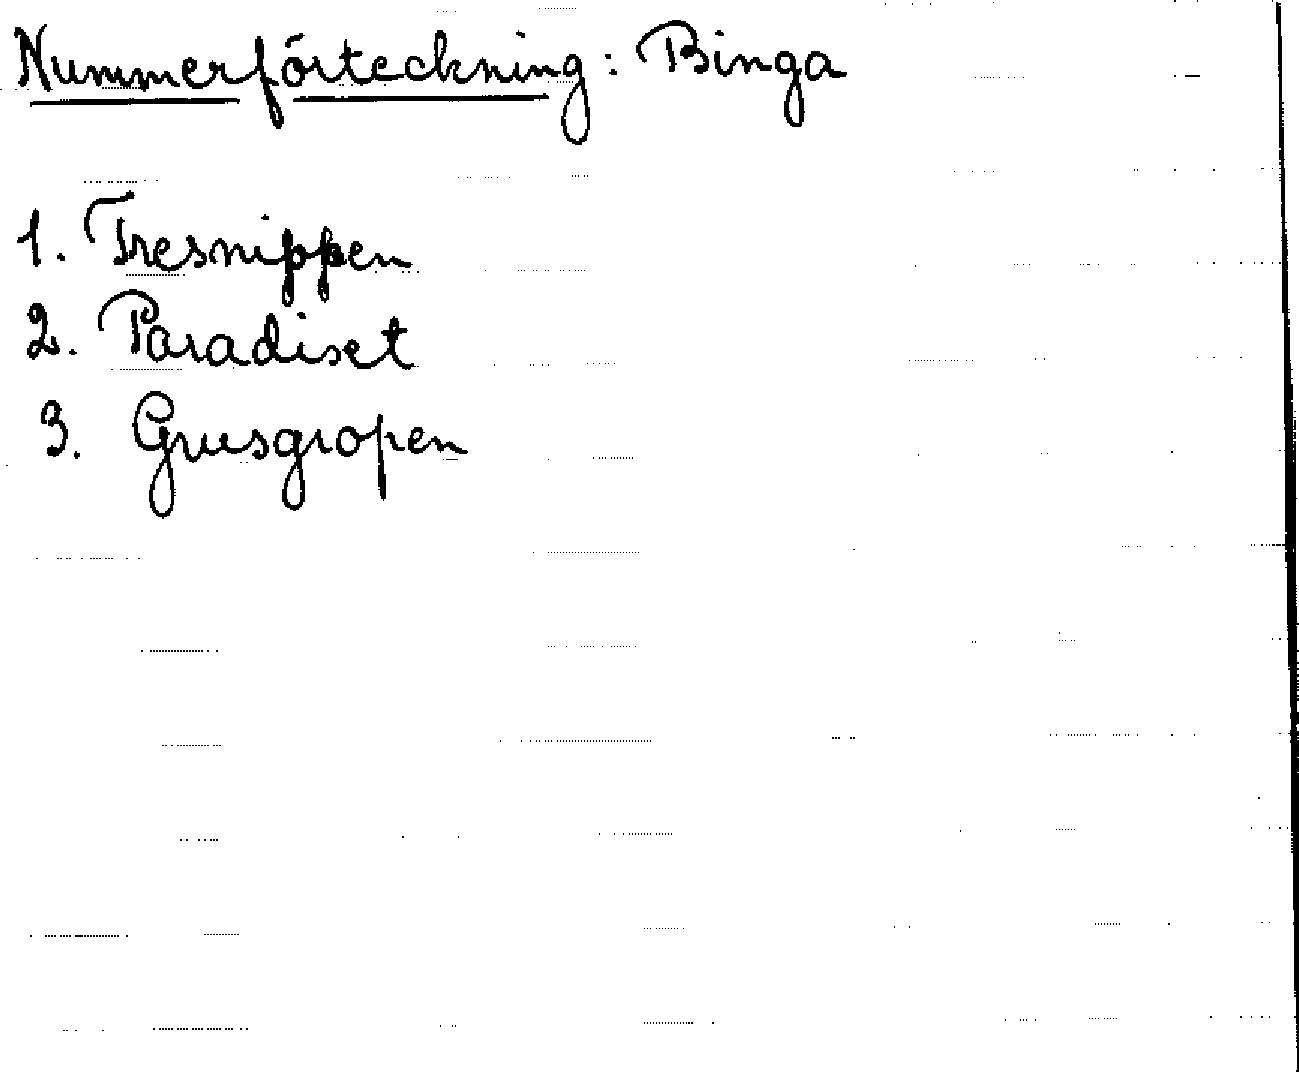 Nummerförteckning: Binga
1. Tresnippen
2. Paradiset
3. Grusgropen